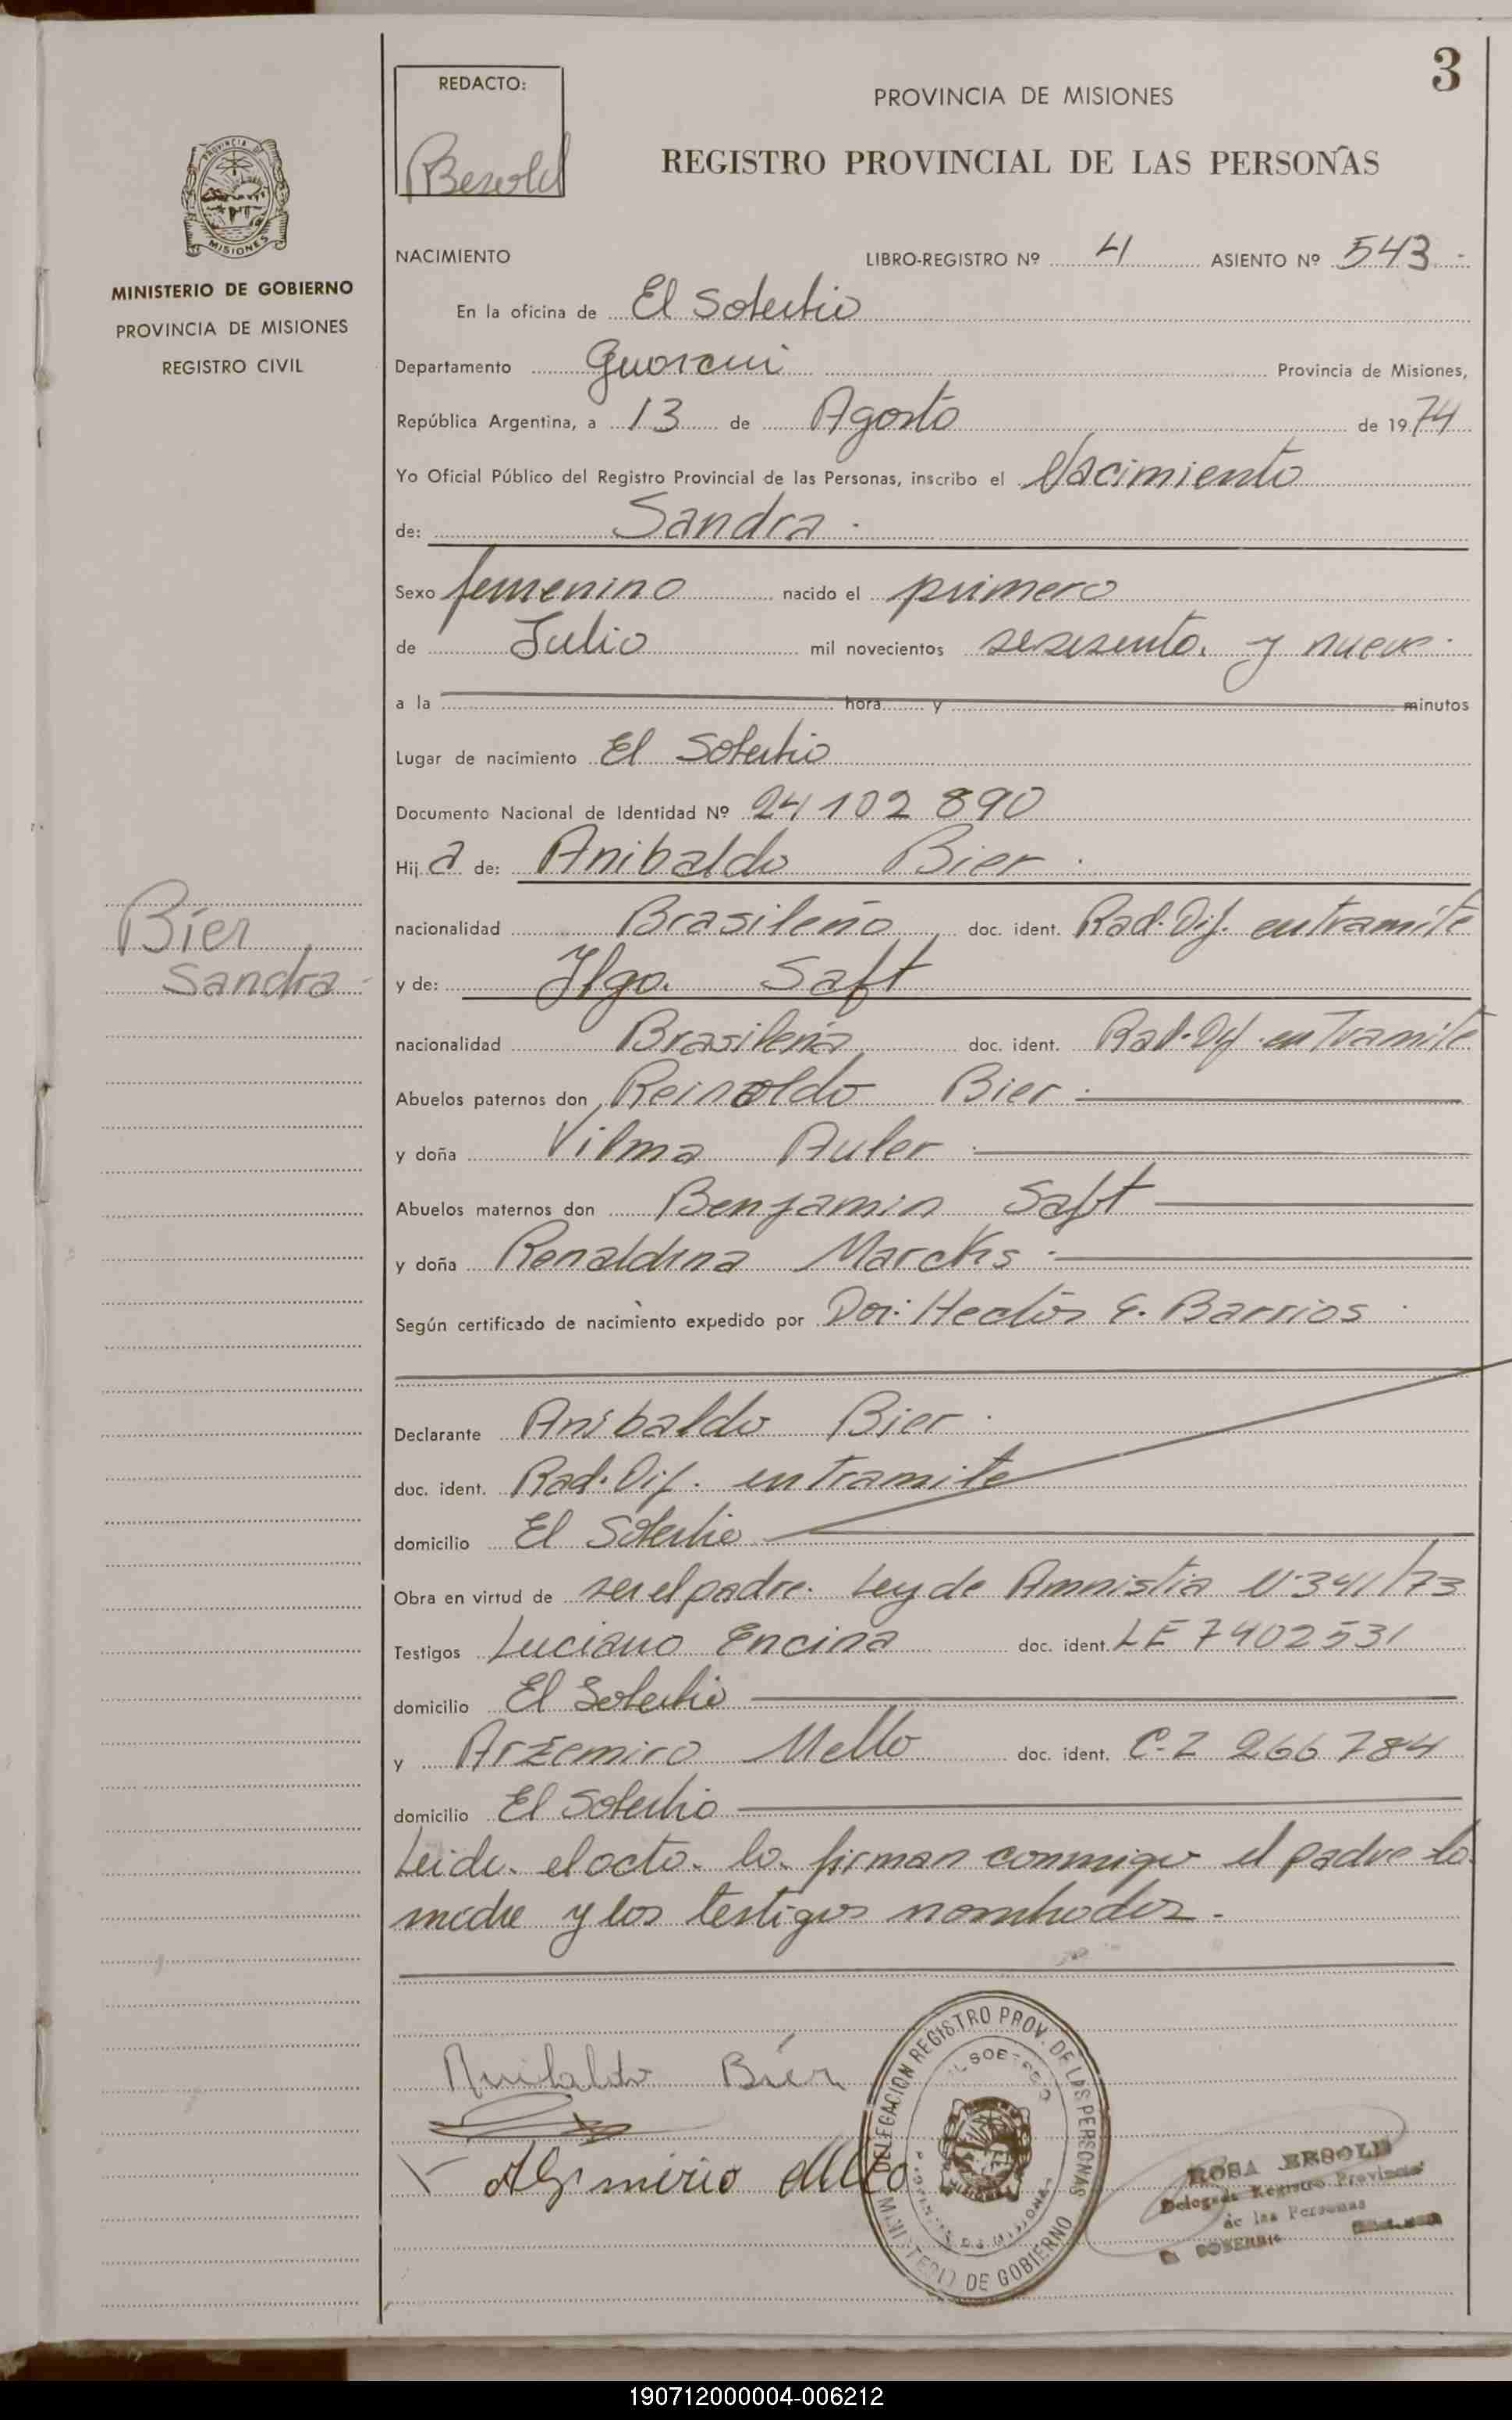 3
REDACTO:
Besold
PROVINCIA DE MISIONES
REGISTRO PROVINCIAL DE LAS PERSONAS
PROVINCIA DE
MISIONES
MINISTERIO DE GOBIERNO
PROVINCIA DE MISIONES
REGISTRO CIVIL
NACIMIENTO LIBRO-REGISTRO Nº 4 ASIENTO Nº 543.-
En la oficina de El Soberbio
Departamento Guarani Provincia de Misiones,
República Argentina, a 13 de Agosto de 1974
Yo Oficial Público del Registro Provincial de las Personas, inscribo el Nacimiento
de: Sandra.
Sexo femenino nacido el primero
de Julio mil novecientos sesesenta y nueve.
a la hora y minutos
Lugar de nacimiento El Soberbio
Documento Nacional de Identidad Nº 24102890
Hija de: Anibaldo Bier.
nacionalidad Brasileño doc. ident. Rad. Dif. en tramite
Bier
Sandra-
y de: Ilga Saft
nacionalidad Brasileña doc. ident. Rad. Dif. en tramite
Abuelos paternos don Reinoldo Bier.
y doña Vilma Auler
Abuelos maternos don Benjamin Saft
y doña Renaldina Marcks.
Según certificado de nacimiento expedido por Dor. Hector E. Barrios.
Declarante Anibaldo Bier.
doc. ident. Rad. Dif. en tramite
domicilio El Soberbio
Obra en virtud de ser el padre. Ley de Amnistia Nº 341/73
Testigos Luciano Encina doc. ident. LE 7402531
domicilio El Soberbio
y Arzemiro Mello doc. ident. C.I 266784
domicilio El Soberbio
Leida el acta la firman conmigo el padre la
madre y los testigos nombrados.-
Anibaldo Bier
DELEGACION REGISTRO PROV. DE LAS PERSONAS
EL SOBERBIO
PROVINCIA DE MISIONES
MINISTERIO DE GOBIERNO
ROSA BESOLD
Delegada Registro Provincial
de las Personas
EL SOBERBIO
190712000004-006212